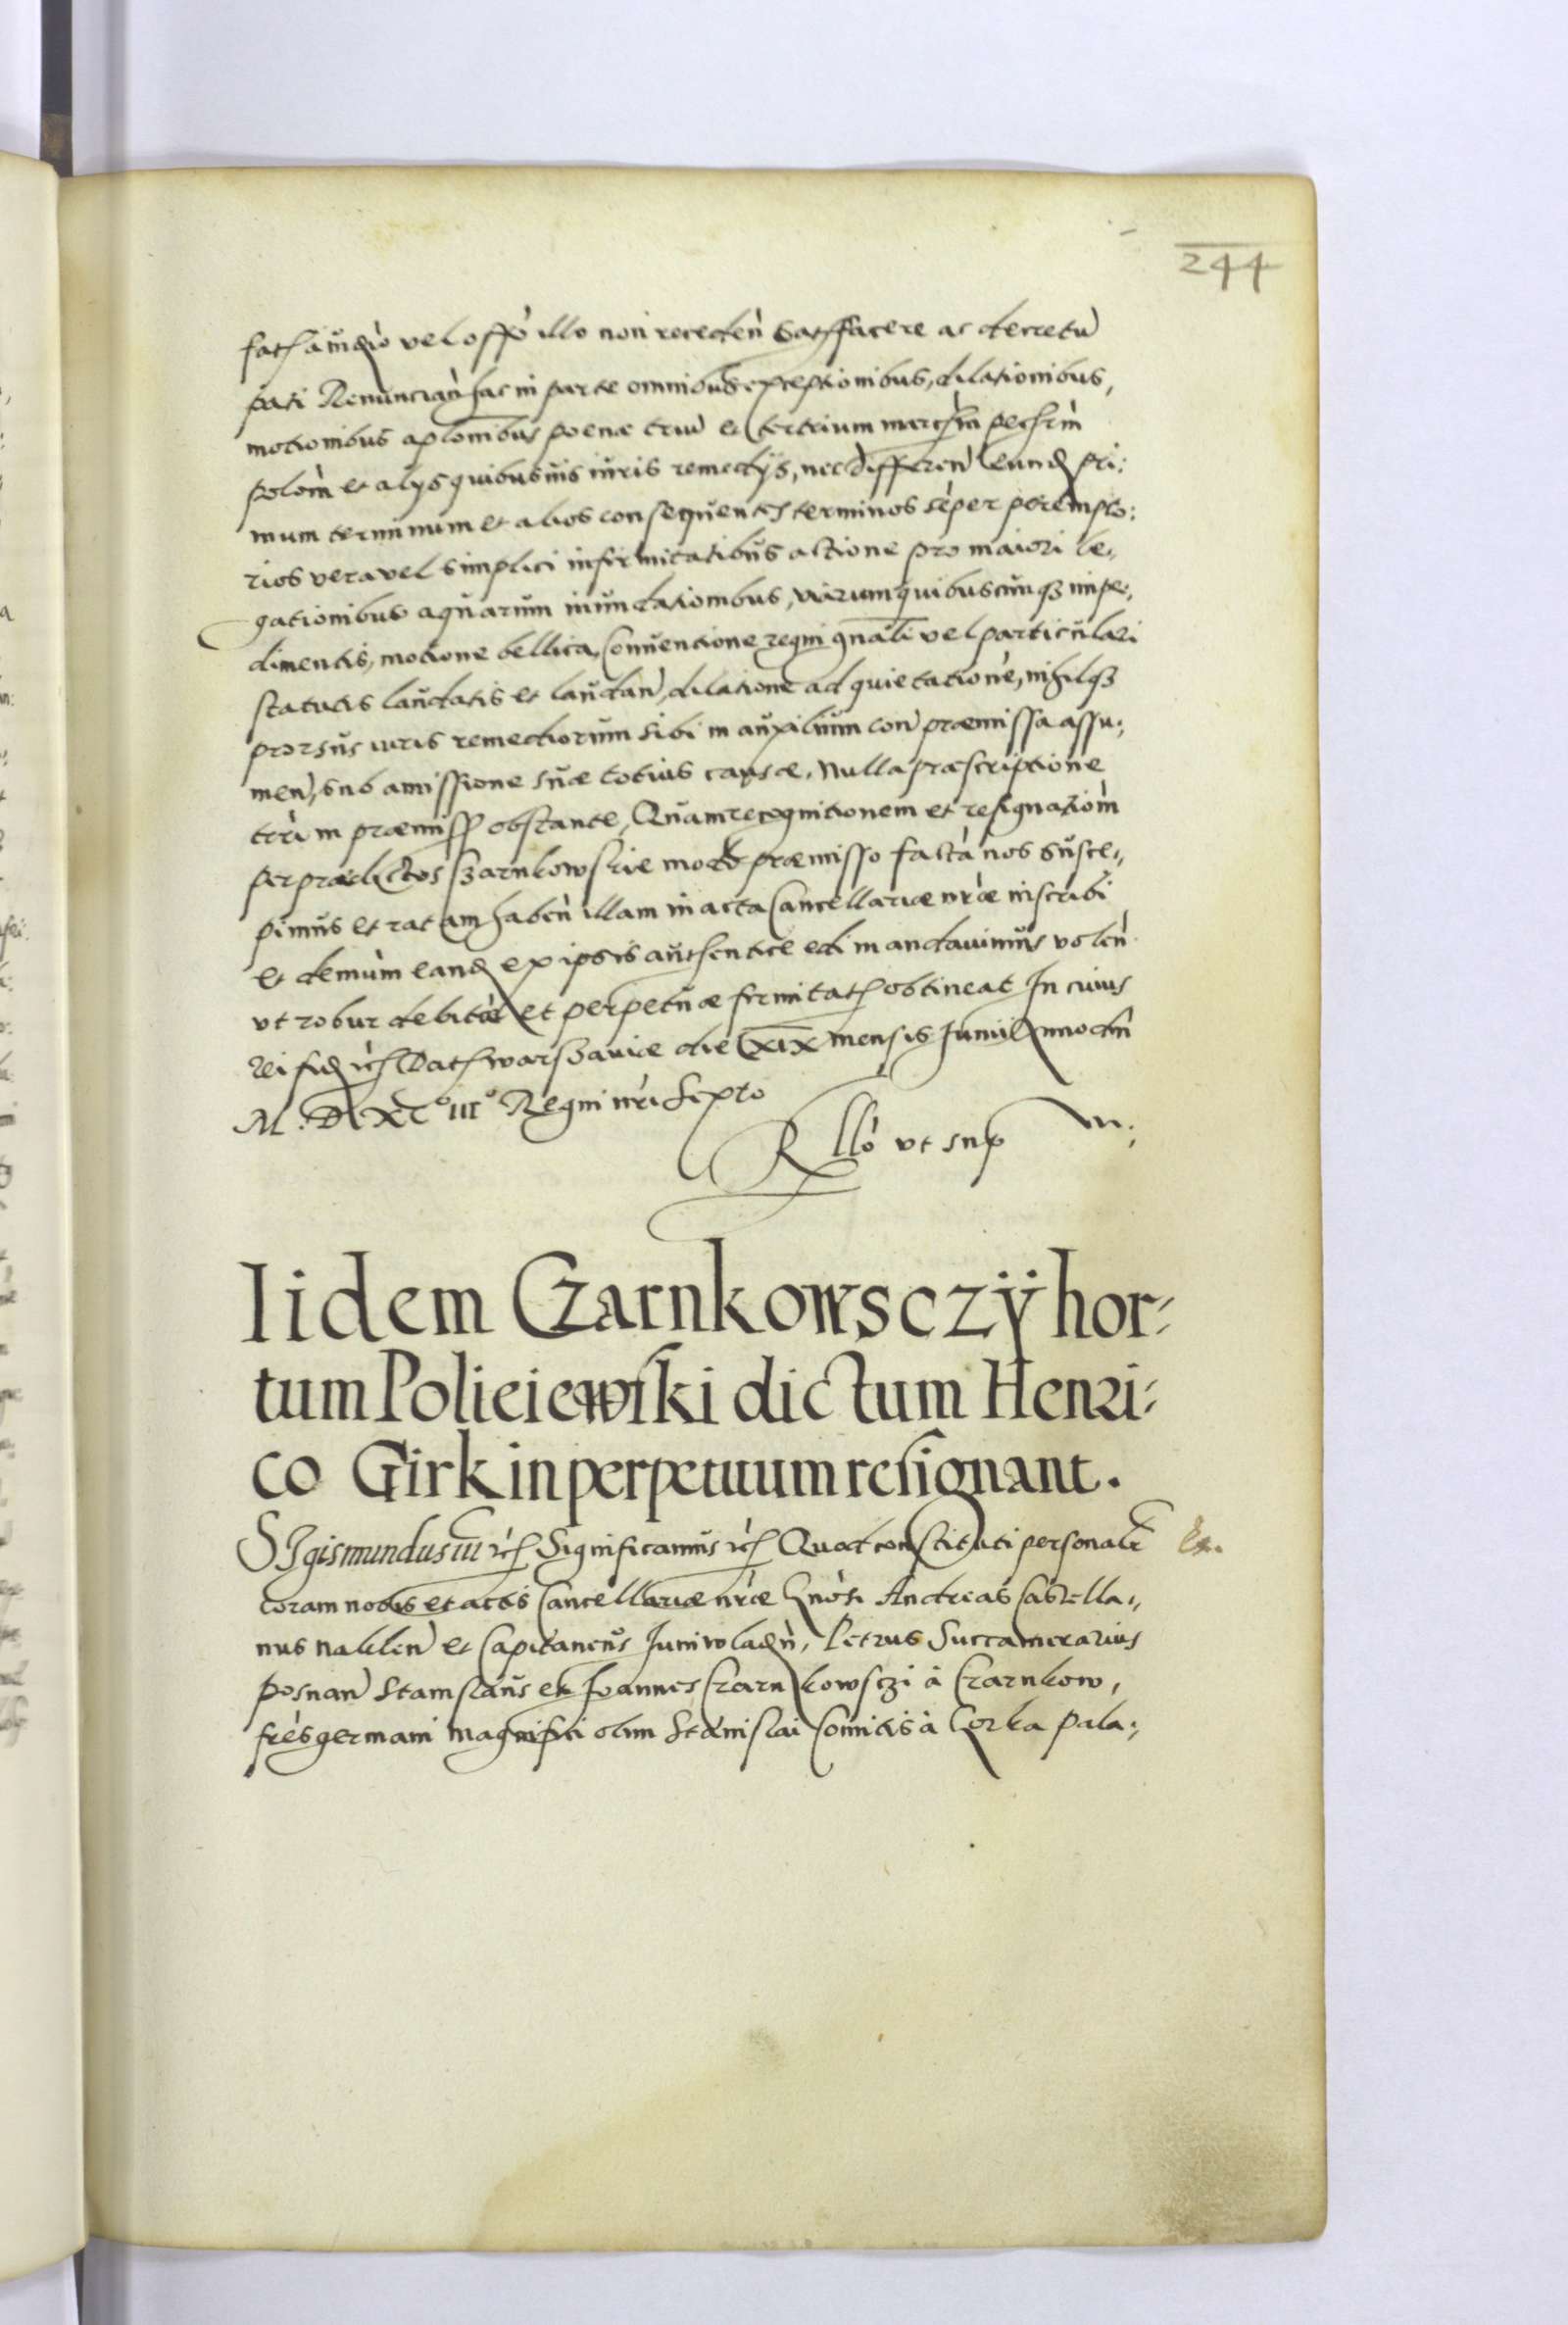 244
fatħ a iudic̀o vel offo illo non receden̄ satisfacere ac decretū
pati Renuncian̄ hac in parte omnibus exceptionibus, dilationibus,
motionibus aplōnibus poenæ triū et tertrium march̄m pech̄rm
polon̄ et alys quibusuis iuris remedijs, nec differen̄ eund pri:
mum terminum et alios consequentes terminos sēper perempto:
rios vera vel simplici infirmitatibus actione pro maiori le,,
gationibus aquarum inundationibus, viarum quibuscunqʒ impe,,
dimentis, motione bellica, Conuentione regni gnāli vel particulari
statutis laudatis et laudan̄, dilatione ad quietationē, nihilqʒ
prorsus iuris remediorum sibi in auxilium con̄ præmissa assu,,
men̄, sub amissione suæ totius causæ. Nulla præscriptione
trrī in præmiss obstante, Quam recognitionem et resignatiōm
per prædictos Czarnkowskie modo præmisso factā nos susce,,
pimus et ratam haben̄ illam in acta Cancellariæ nr̄æ inscribi
et demùm eand ex ipsis authentice edi mandauimus volen̄
vt robur debitæ et perpetuæ firmitatħ obtineat In cuius
rei fid etc̄ Datħ warszauiæ die XIX mensis Junij Anno dn̄i
M. D. XC° III° Regni nr̄i Sexto
Rllō vt sup m;
Iidem Czarnkowsczÿ hor-
tum Policiewſki dictum Henri-
co Girk in perpetuum reſignant.
SIgismundus III etc̄ Significamus etc̄ Quod constituti personalr̄ Ex.
coram nobis et actis Cancellariæ nr̄æ Gnōsi Andreas Castella,,
nus naklen̄ et Capitaneus Juniwladn̄, Petrus Succamerarius
Posnan̄ Stanislaus et Joannes Czarnkowsczi à Czarnkow,
frēs germani magnifici olim Stanislai Comitis à Gorka Pala,,